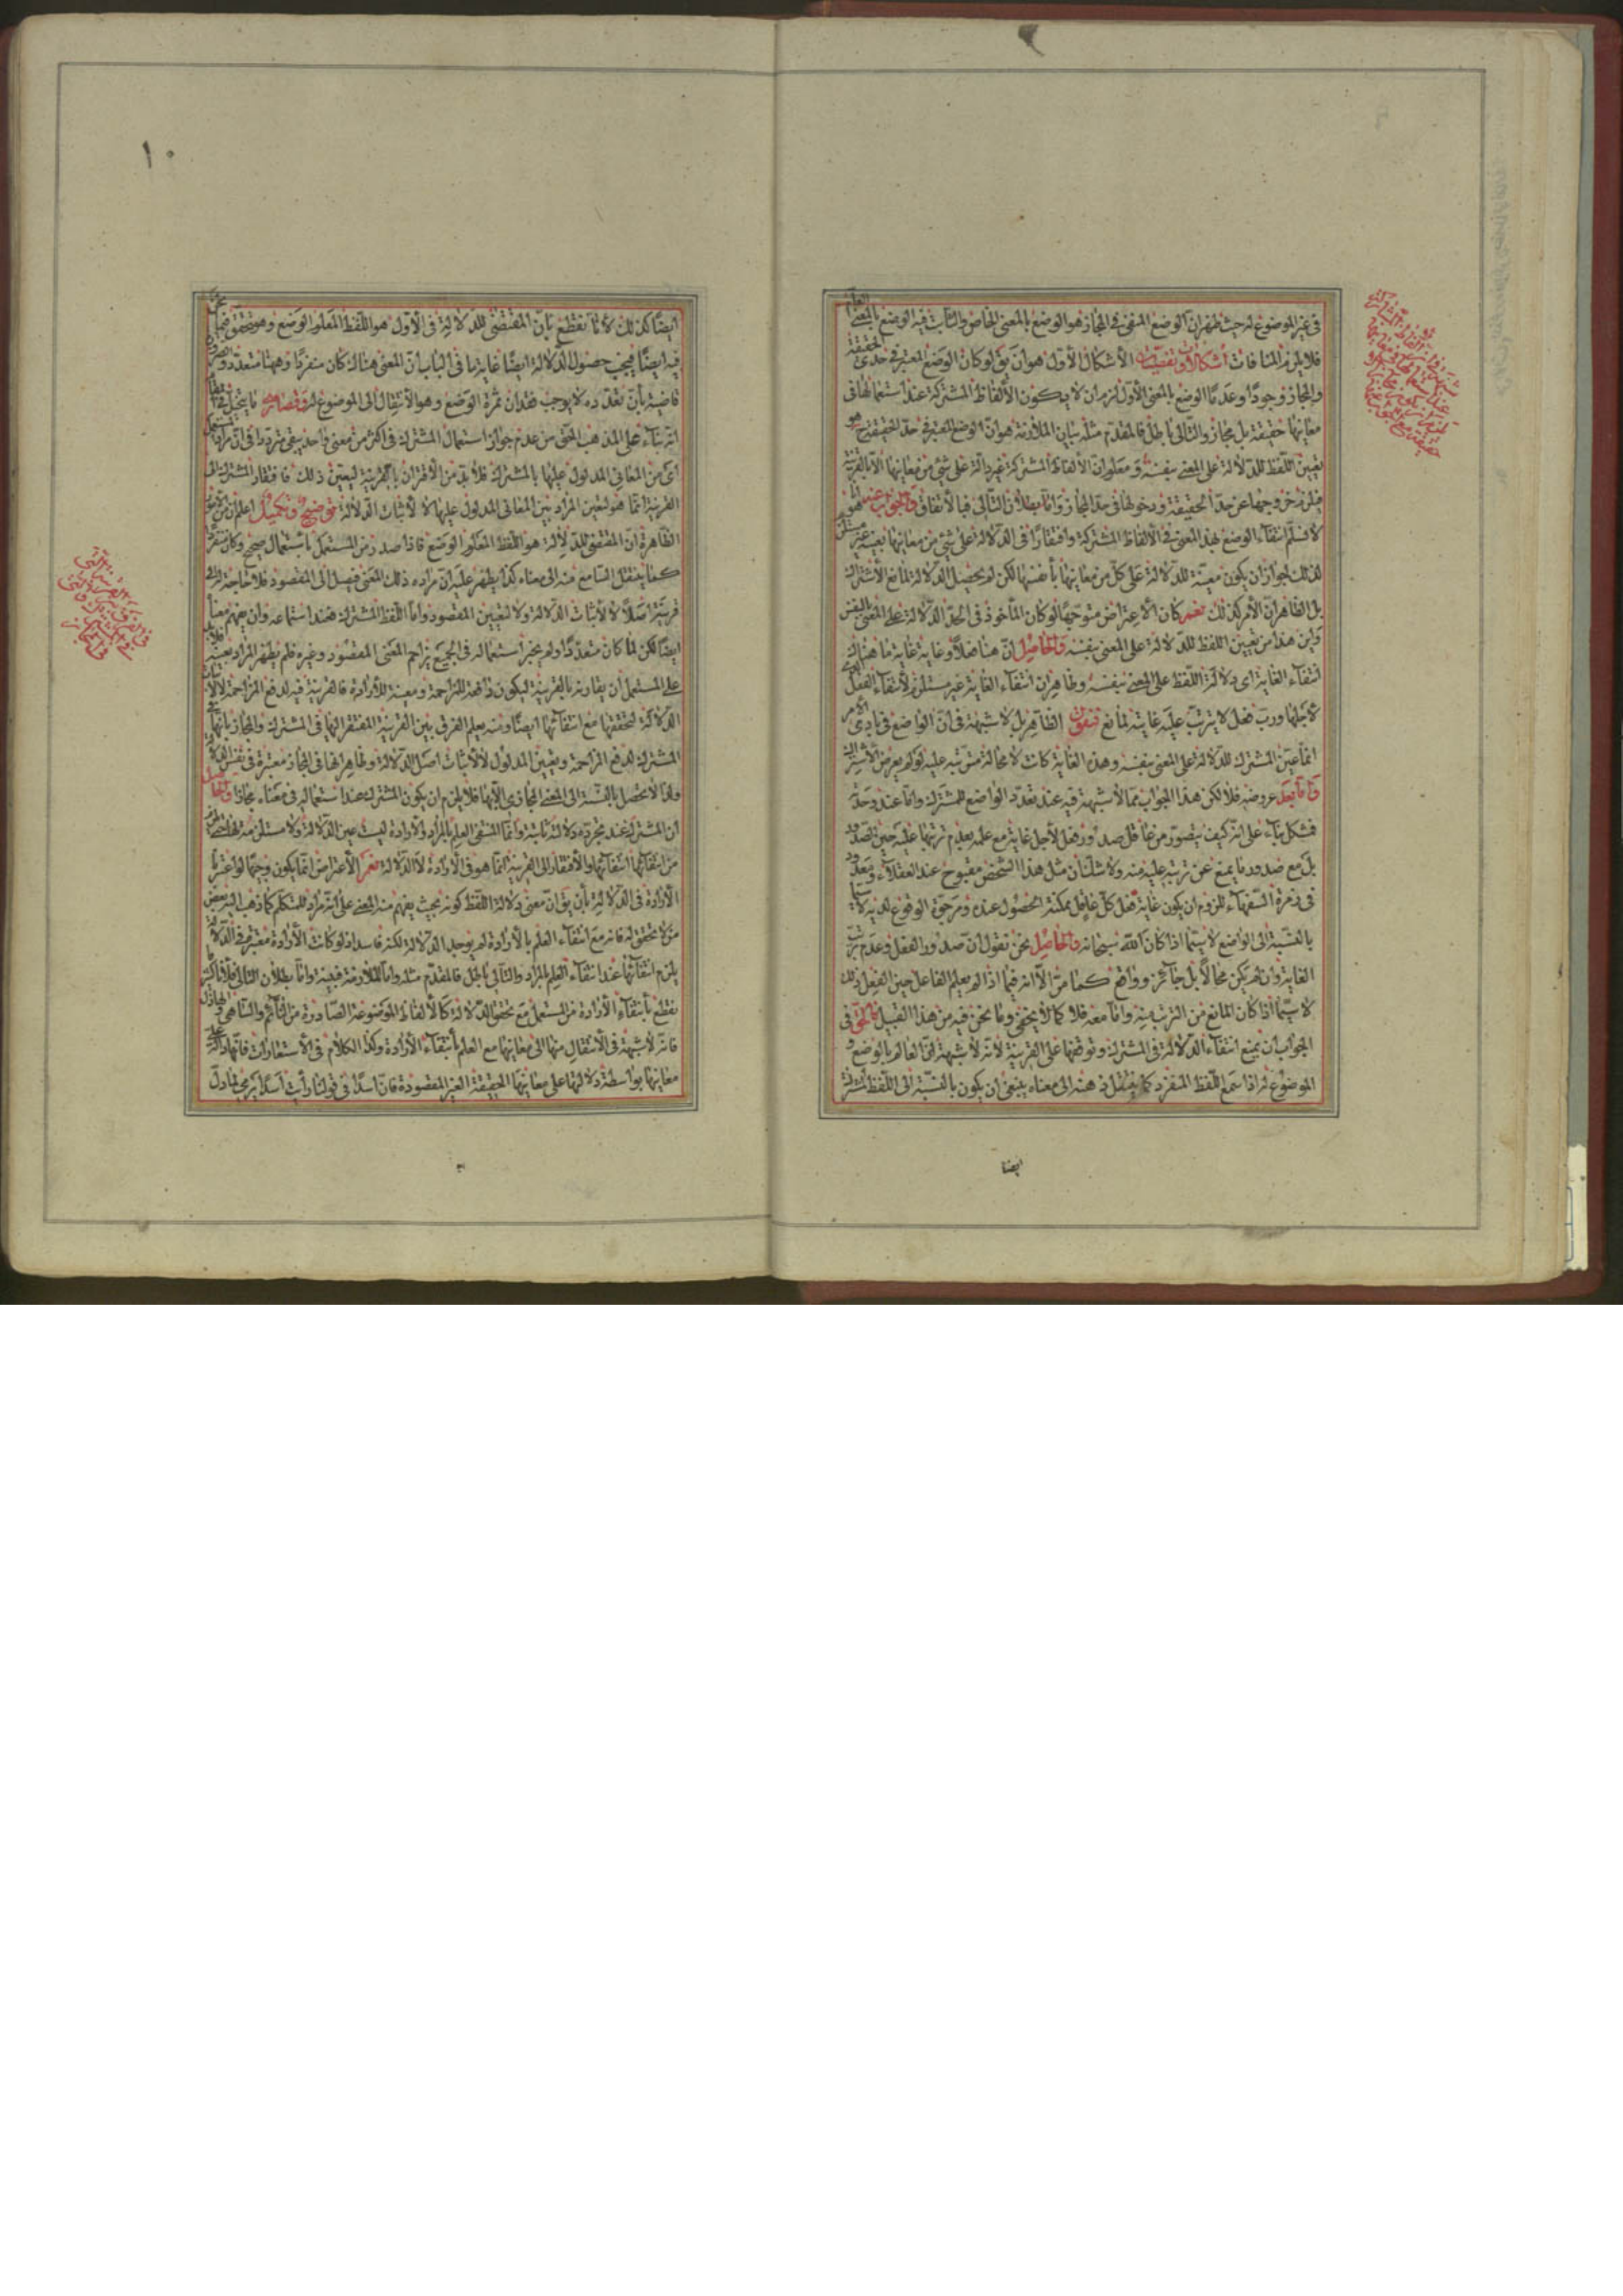 في غير الموضوع له حيث ظهر ان الوضع المنفي في المجاز هو الوضع بالمعنى الخاص والثابت فيه الوضع بالمعنى العام
فلا يلزم المنافات اشكالان وتفصيات الاشكال الاول هو ان يق لو كان الوضع المعتبر في حدى الحقيقة
والمجاز وجودًا وعدمًا الوضع بالمعنى الاول لزم ان لا يكون الالفاظ المشتركة عند استعمالها في
معانيها حقيقة بل مجاز والتالى باطل فالمقدم مثله بيان الملازمة هو ان الوضع المعتبر في حد الحقيقة ح هو
تعيين اللفظ للدلالة على المعنى بنفسه ومعلوم ان الالفاظ المشتركة غير دالة على شئ من معانيها الا بالقرينة
فلزم خروجها عن حد الحقيقة ودخولها في حد المجاز واما بطلان التالى فبالاتفاق والجواب عنه
لا نسلم انتفاء الوضع بهذا المعنى في الالفاظ المشتركة وافتقارًا في الدلالة على شئ من معانيها بعينه غير مستلزم
لذلك لجواز ان يكون معينة للدلالة على كل من معانيها بأنفسها لكن لم يحصل الدلالة لمانع الاشتراك
بل الظاهر ان الامر كذلك نعم كان الاعتراض متوجهًا لو كان المأخوذ في الحد الدلالة على المعنى بالنفس
واين هذا من تعيين اللفظ للدلالة على المعنى بنفسه والحاصل ان هنا فعلًا وغاية غاية ما هناك
انتفاء الغاية اى دلالة اللفظ على المعنى بنفسه وظاهر ان انتفاء الغاية غير مستلزم لانتفاء الفعل
لاجلها ورب فعل لا يترتب عليه غايته لمانع فنقول الظاهر بل لا شبهة في ان الواضع في بادى الامر
انما عين المشترك للدلالة على المعنى بنفسه وهذه الغاية كانت لا محالة مترتبة عليه لو لم يعرض الاشتراك
واما بعد عروضه فلا لكن هذا الجواب مما لا شبهة فيه عند تعدد الواضع للمشترك واما عند وحدته
فمشكل بناء على انه كيف يتصور من عاقل صدور فعل لاجل غاية مع علمه بعدم ترتبها عليه حين الصدور
بل مع صدور ما يمنع عن ترتبه عليه منه ولا شك ان مثل هذا الشخص مقبوح عند العقلاء ومعدود
في زمرة السفهاء للزوم ان يكون غاية فعل كل عاقل ممكنة الحصول عنده ومرجوة الوقوع لديه لا سيما
بالنسبة الى الواضع لا سيما اذا كان الله سبحانه والحاصل نحن نقول ان صدور الفعل وعدم ترتب
الغاية وان لم يكن محالًا بل جائز وواقع كما مر الا انه فيما اذا لم يعلم الفاعل حين الفعل ذلك
لا سيما اذا كان المانع من الترتب منه واما معه فلا كما لا يخفى وما نحن فيه من هذا القبيل فالحق في
الجواب ان يمنع انتفاء الدلالة في المشترك وتوقفها على القرينة لانه لا شبهة ان العالم بالوضع و
الموضوع له اذا سمع اللفظ المنفرد كما ينتقل ذهنه الى معناه ينبغى ان يكون بالنسبة الى اللفظ المشترك
ايضا
١٠
ايضًا كذلك لانا نقطع بان المقتضى للدلالة في الاول هو اللفظ المعلوم الوضع وهو متحقق فيما نحن
فيه ايضًا فيجب حصول الدلالة ايضًا غاية ما في الباب ان المعنى هناك كان منفردًا وههنا متعدد والضرورة
قاضية بان تعدده لا يوجب فقدان ثمرة الوضع وهو الانتقال الى الموضوع له
انه بناء على المذهب الحق من عدم جواز استعمال المشترك في اكثر من معنى واحد يبقى مترددًا في ان مراد المستعمل
اى من المعاني المدلول عليها بالمشترك فلا بد من الاقتران بالقرينة ليعين ذلك فافتقار المشترك الى
القرينة انما هو لتعيين المراد بين المعانى المدلول عليها لا لاثبات الدلالة توضيح وتكميل اعلم ان من الامور
الظاهرة ان المقتضى للدلالة هو اللفظ المعلوم الوضع فاذا صدر من المستعمل باستعمال صحيح وكان منفردًا
كما ينتقل السامع منه الى معناه كذا يظهر عليه ان مراده ذلك المعنى فيصل الى المقصود فلا حاجة له الى
قرينة اصلًا لا لاثبات الدلالة ولا لتعيين المقصود واما اللفظ المشترك فعند استماعه وان يفهم معناه
ايضًا لكن لما كان متعددًا ولم يجز استعماله في الجميع يزاحم المعنى المقصود وغيره فلم يظهر المراد بعينه فلا بد
على المستعمل ان يقارنه بالقرينة ليكون دافعة للمزاحمة ومعينة للارادة فالقرينة فيه لدفع المزاحمة لا لاثبات
الدلالة لتحققها مع انتفائها ايضًا ومنه يعلم الفرق بين القرينة المفتقر اليها في المشترك والمجاز بانها في
المشترك لدفع المزاحمة وتعيين المدلول لا لاثبات اصل الدلالة وظاهر انها في المجاز معتبرة في نفس الدلالة
ولذا لا يحصل بالنسبة الى المعنى المجازى الا بها فلا يلزم ان يكون المشترك عند استعماله في معناه مجازًا والحاصل
ان المشترك عند تجرده دلالته ثابتة وانما المنتفى العلم بالمراد والارادة ليست عين الدلالة ولا مستلزمة لها حتى يلزم
من انتفائها انتفائها والافتقار الى القرينة انما هو في الارادة لا الدلالة نعم الاعتراض انما يكون وجيهًا لو اعتبر
الارادة في الدلالة بأن يق ان معنى دلالة اللفظ كونه بحيث يفهم منه المعنى على انه مراد للمتكلم كما ذهب اليه بعض
من لا تحقق له فانه مع انتفاء العلم بالارادة لم يوجد الدلالة لكنه فاسد اذ لو كانت الارادة معتبرة في الدلالة
يلزم انتفائها عند انتفاء العلم بالمراد والتالى باطل فالمقدم مثله واما الملازمة فبينة واما بطلان التالى فلانا كثيرًا ما
نقطع بانتفاء الارادة من المستعمل مع تحقق الدلالة كالالفاظ الموضوعة الصادرة من النائم والساهى والهاذل
فانه لا شبهة في الانتقال منها الى معانيها مع العلم بانتفاء الارادة وكذا الكلام في الاستعارات فانها دالة على
معانيها بواسطة دلالتها على معانيها الحقيقة الغير المقصودة فان اسدًا في قولنا رأيت اسدًا يرمى مما دل